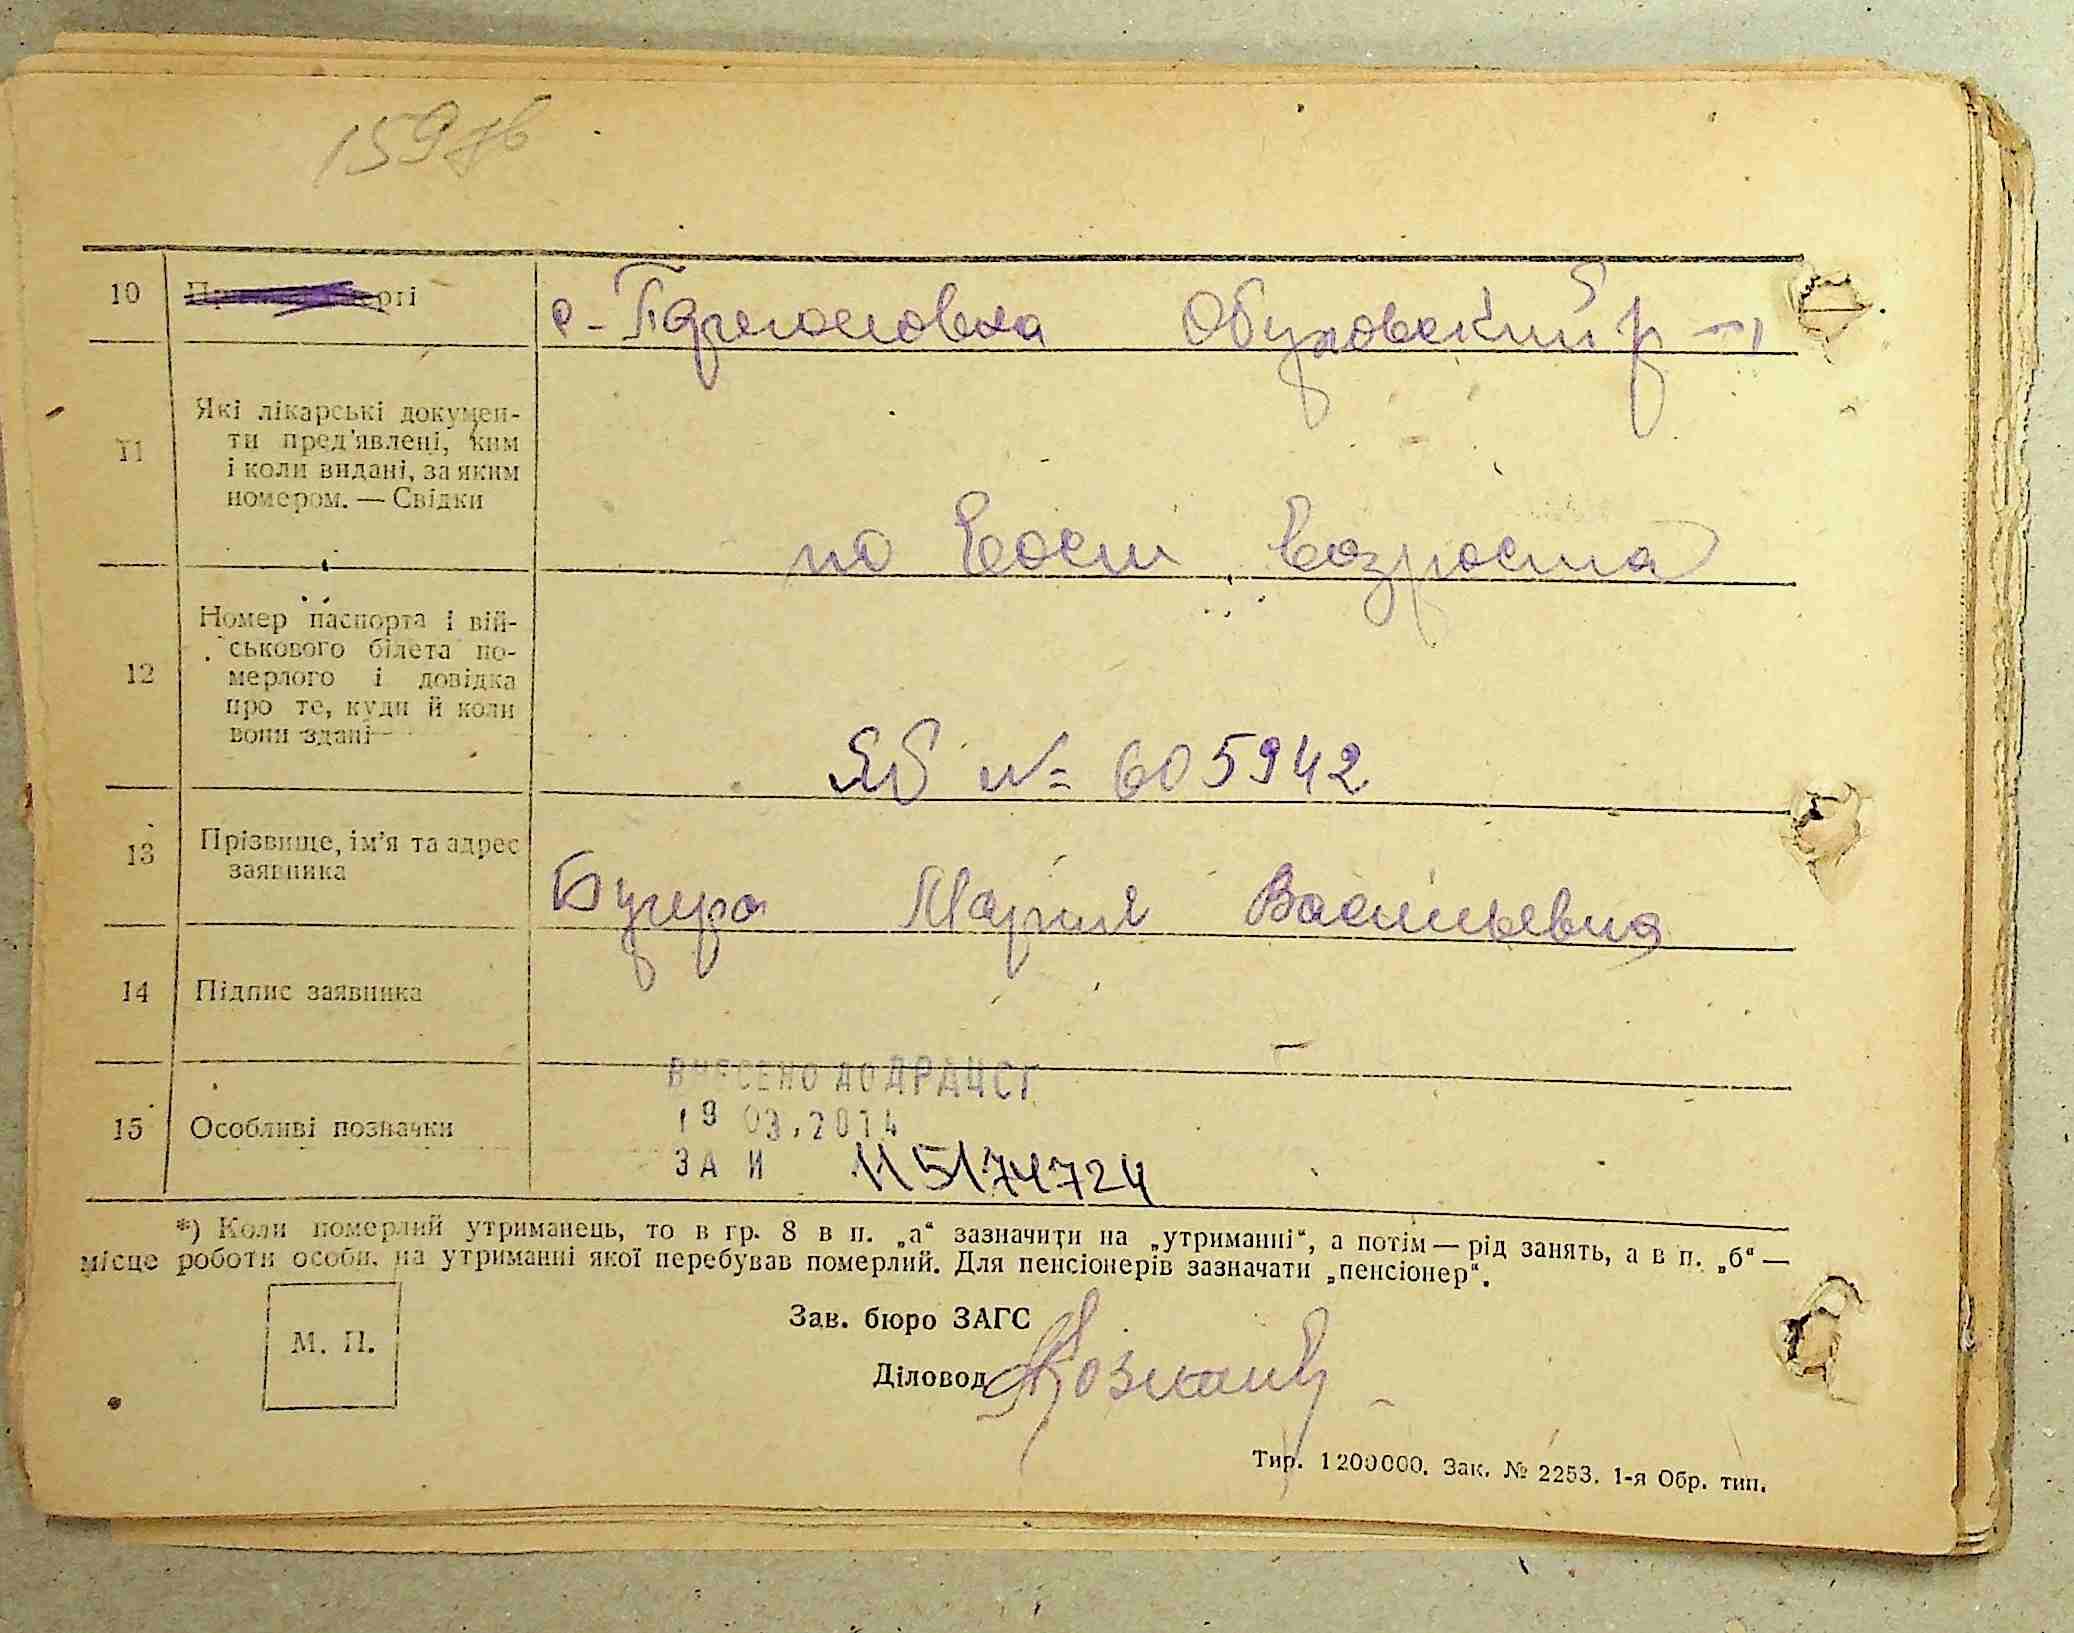 159зв
10
с. Германовка Обуховский р-н
11
Які лікарські докумен-
ти пред'явлені, ким
і коли видані, за яким
номером. — Свідки
по возрста
12
Номер паспорта і вій-
ськового білета по-
мерлого і довідка
про те, куди й коли
вони здані
ЯБ № 605942
13
Прізвище, ім'я та адрес
заявника
Бугера Мария Васильевна
14
Підпис заявника
15
Особливі позначки
ВНЕСЕНО ДО ДРАЦСГ
19 03.2014
ЗА И 115174724
*) Коли померлий утриманець, то в гр. 8 в п. „а“ зазначити на „утриманні“, а потім — рід занять, а в п. „б“ —
місце роботи особи, на утриманні якої перебував померлий. Для пенсіонерів зазначати „пенсіонер“.
М. П.
Зав. бюро ЗАГС
Діловод
Тир. 1200000. Зак. № 2253. 1-я Обр. тип.